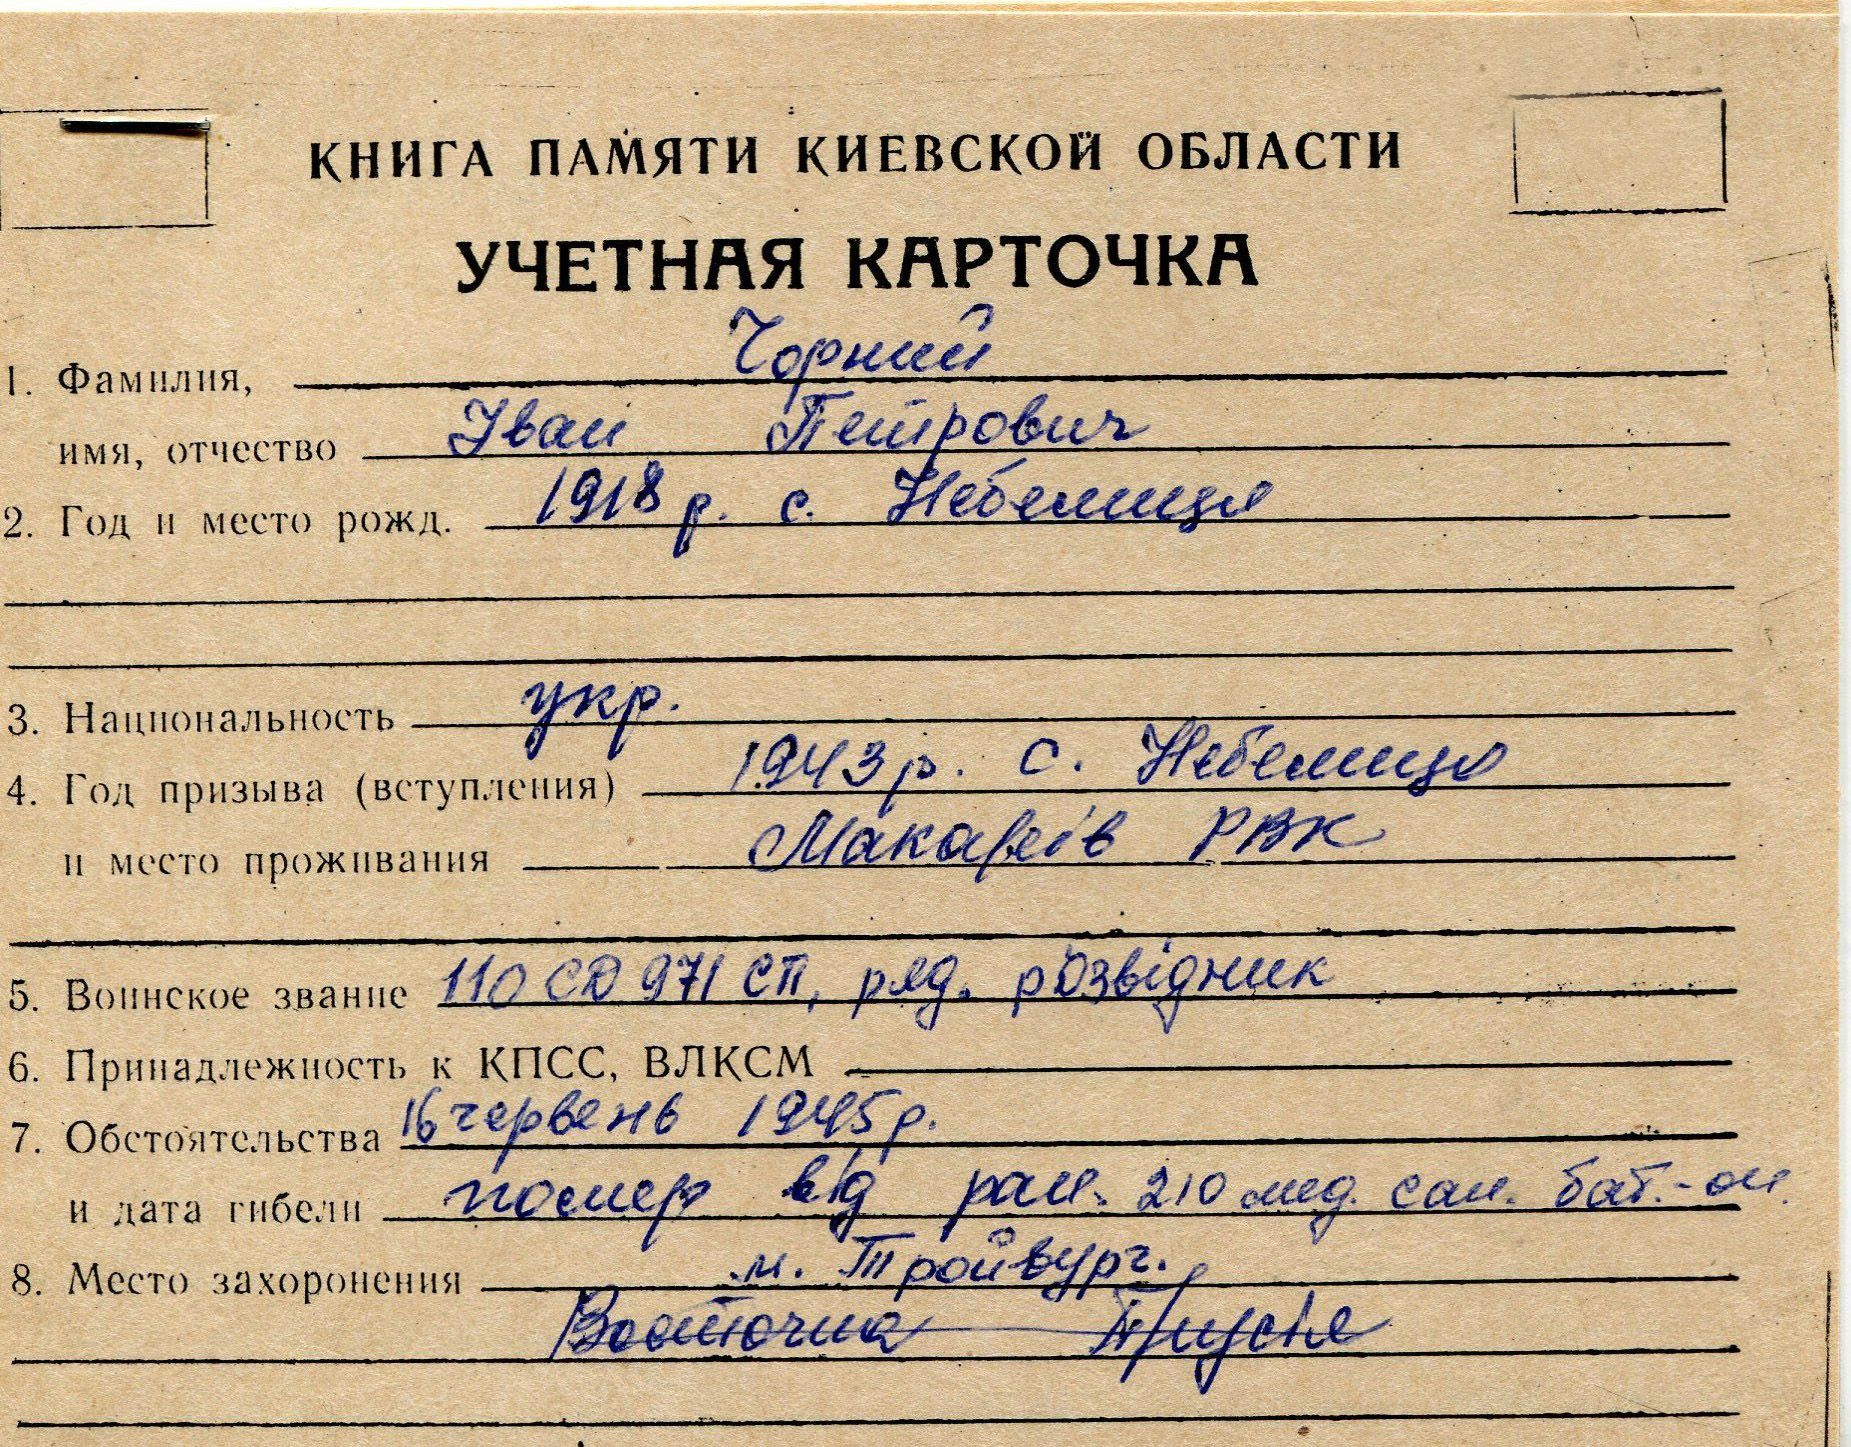 КНИГА ПАМЯТИ КИЕВСКОЙ ОБЛАСТИ
УЧЕТНАЯ КАРТОЧКА
1. Фамилия, Чорний
имя, отчество Іван Петрович
2. Год и место рожд. 1918 р. с. Небелиця
3. Национальность укр.
4. Год призыва (вступления) 1943 р. с. Небелиця
и место проживания Макарів РВК
5. Воинское звание 110 СД 971 СП, ряд. розвідник
6. Принадлежность к КПСС, ВЛКСМ
7. Обстоятельства 16 червень 1945 р.
и дата гибели помер від ран. 210 мед. сан. бат.-он.
8. Место захоронения м. Тройбург.
Восточна Прусія